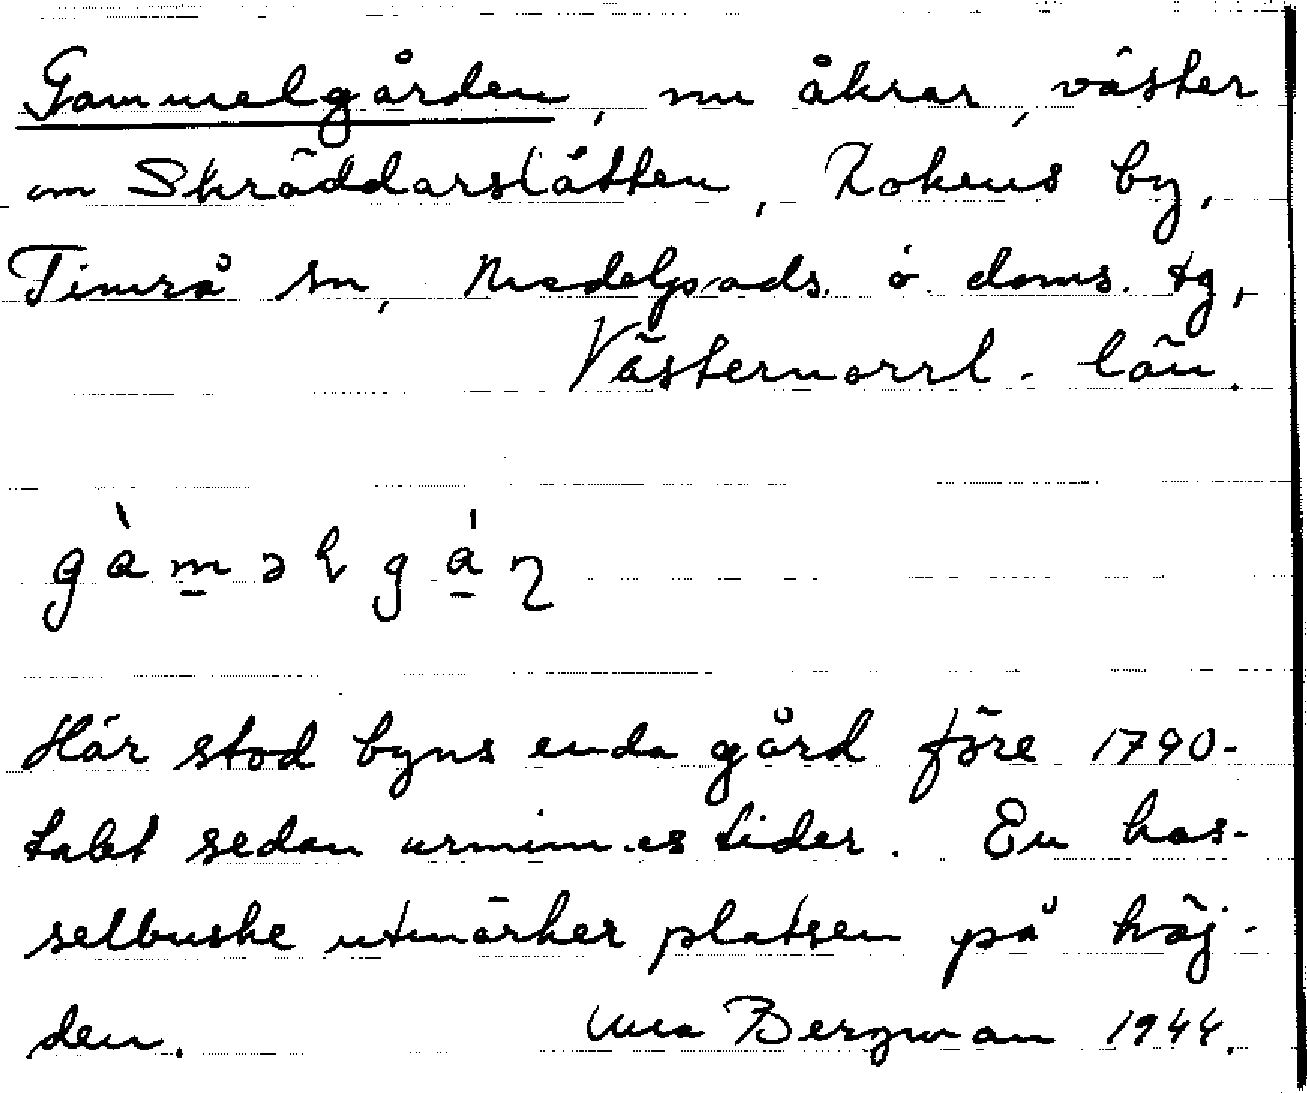 Gammelgården, nu åkrar, väster
om Skräddarslåtten, Rokens by,
Timrå sn, Medelpads ö. doms. tg,
Västernorrl. län.
gàməlgáɳ
Här stod byns enda gård före 1790-
talet sedan urminnes tider. En has-
selbuske utmärker platsen på höj-
den. Bergman 1944.